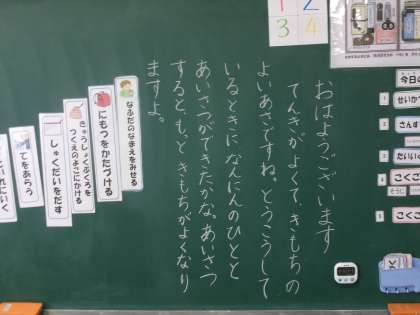 おはようございます
てんきがよくて、きもちの
よいあさですね。とうこうして
いるときに、なんにんのひとと
あいさつができたかな。あいさつ
すると、もっときもちがよくなり
ますよ。
なふだのなまえをみせる
にもつをかたづける
きゅうしょくぶくろを
つくえのよこにかける
しゅくだいをだす
てをあらう
1
2
3
4
今日の
1
せいかつ
2
さんすう
3
たいいく
4
こくご
5
こくご